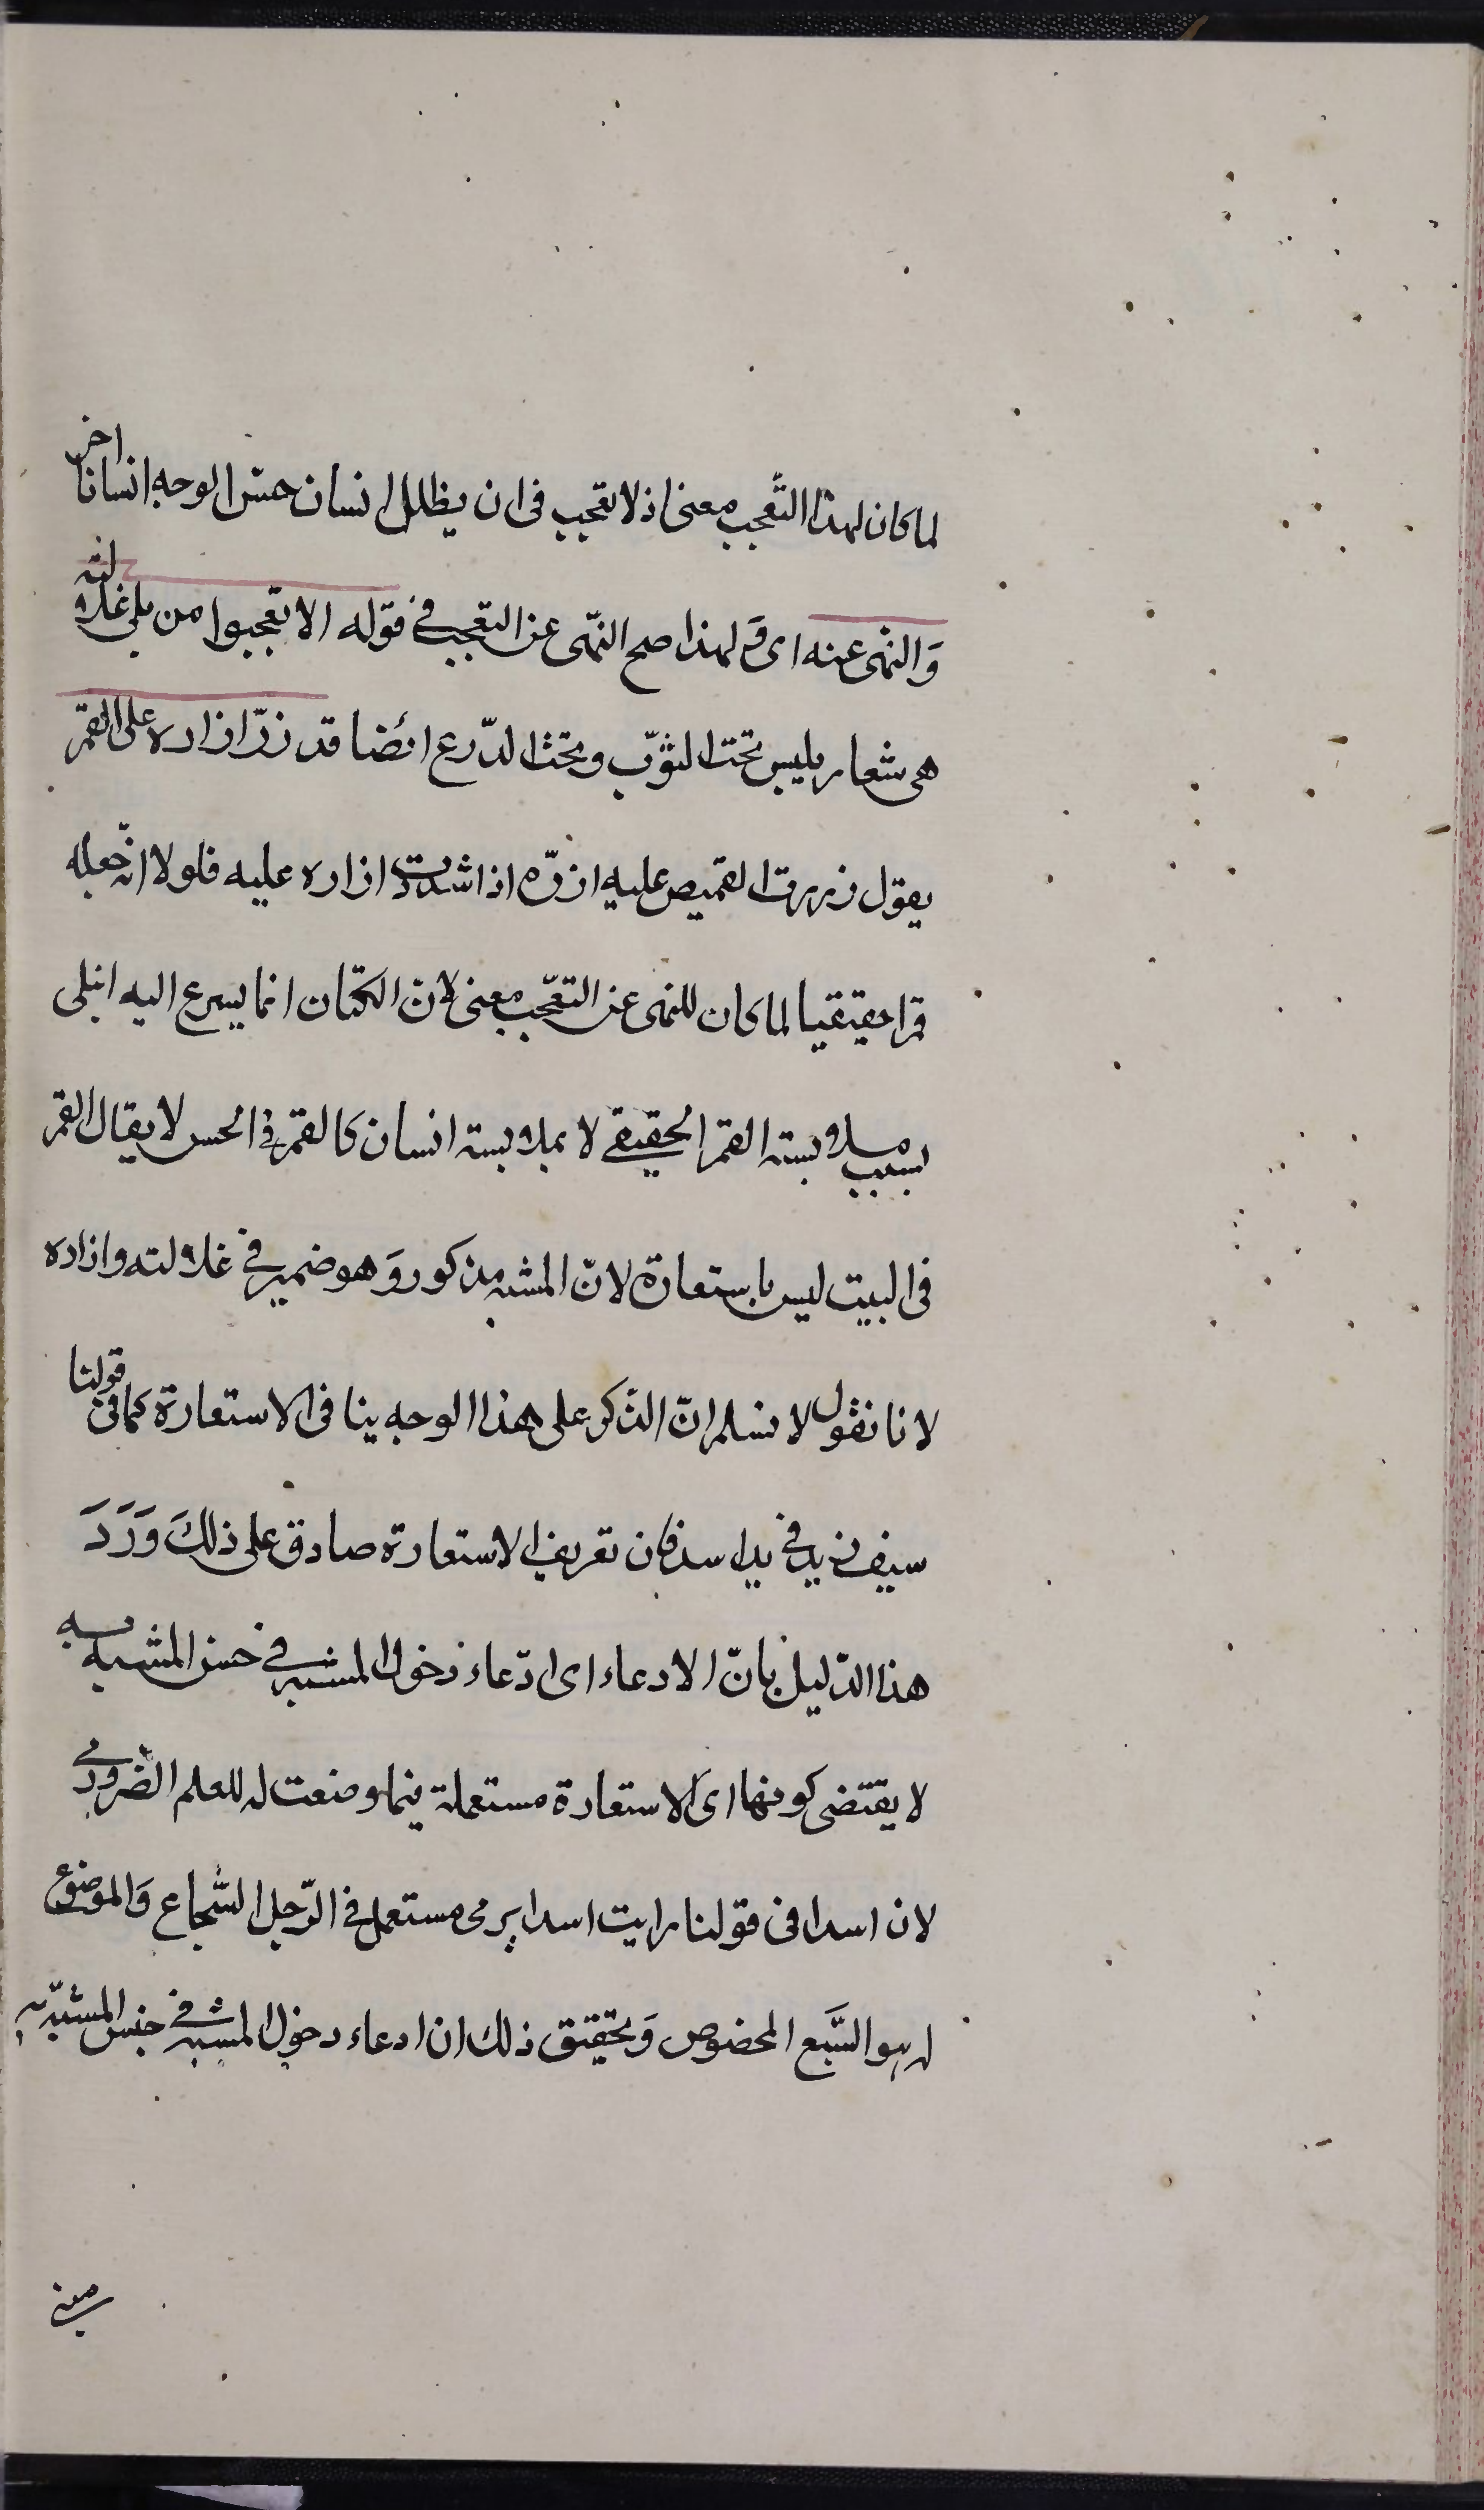 لما كان لهذا التّعجب معنى اذ لا تعجب فى ان يظلل انسان حسن الوجه انسانا اخر
وَالنهى عنه اى وَلهذا صح النّهى عن التعجب فى قوله الا تعجبوا من بلى غلالته
هى شعار يلبس تحت الثوّب وتحت الدّرع ائضا قد زرّ ازاره على القمر
يقول زررت القميص عليه ازرّه اذا شددت ازاره عليه فلولا انّه جعله
قمرا حقيقيا لما كان للنهى عن التعّجب معنى لان الكتان انما يسرع اليه البلى
بسبب ملابسته القمر الحقيقي لا بملابسته انسان كالقمر فى الحسن لا يقال القمر
فى البيت ليس باستعارة لانّ المشبه مذكور وَهو ضمير في غلالته وازاره
لانا نقول لا نسلم انّ الذّكر على هذا الوجه ينافى الاستعارة كما فى قولنا
سيف زيد في يد اسد فان تعريف الاستعارة صادق على ذلكَ وَرَدَ
هذا الدّليل بانّ الادعاء اى ادّعاء دخول المشبه في جنس المشبه به
لا يقتضى كونها اى الاستعارة مستعملة فيما وضعت له للعلم الضّرورى
لان اسدا فى قولنا رايت اسدا يرمى مستعمل في الرّجل الشّجاع وَالموضوع
له هو السَّبع المخصوص وَتحقيق ذلك ان ادعاء دخول المشبه في جنس المشبّه به
مبنى